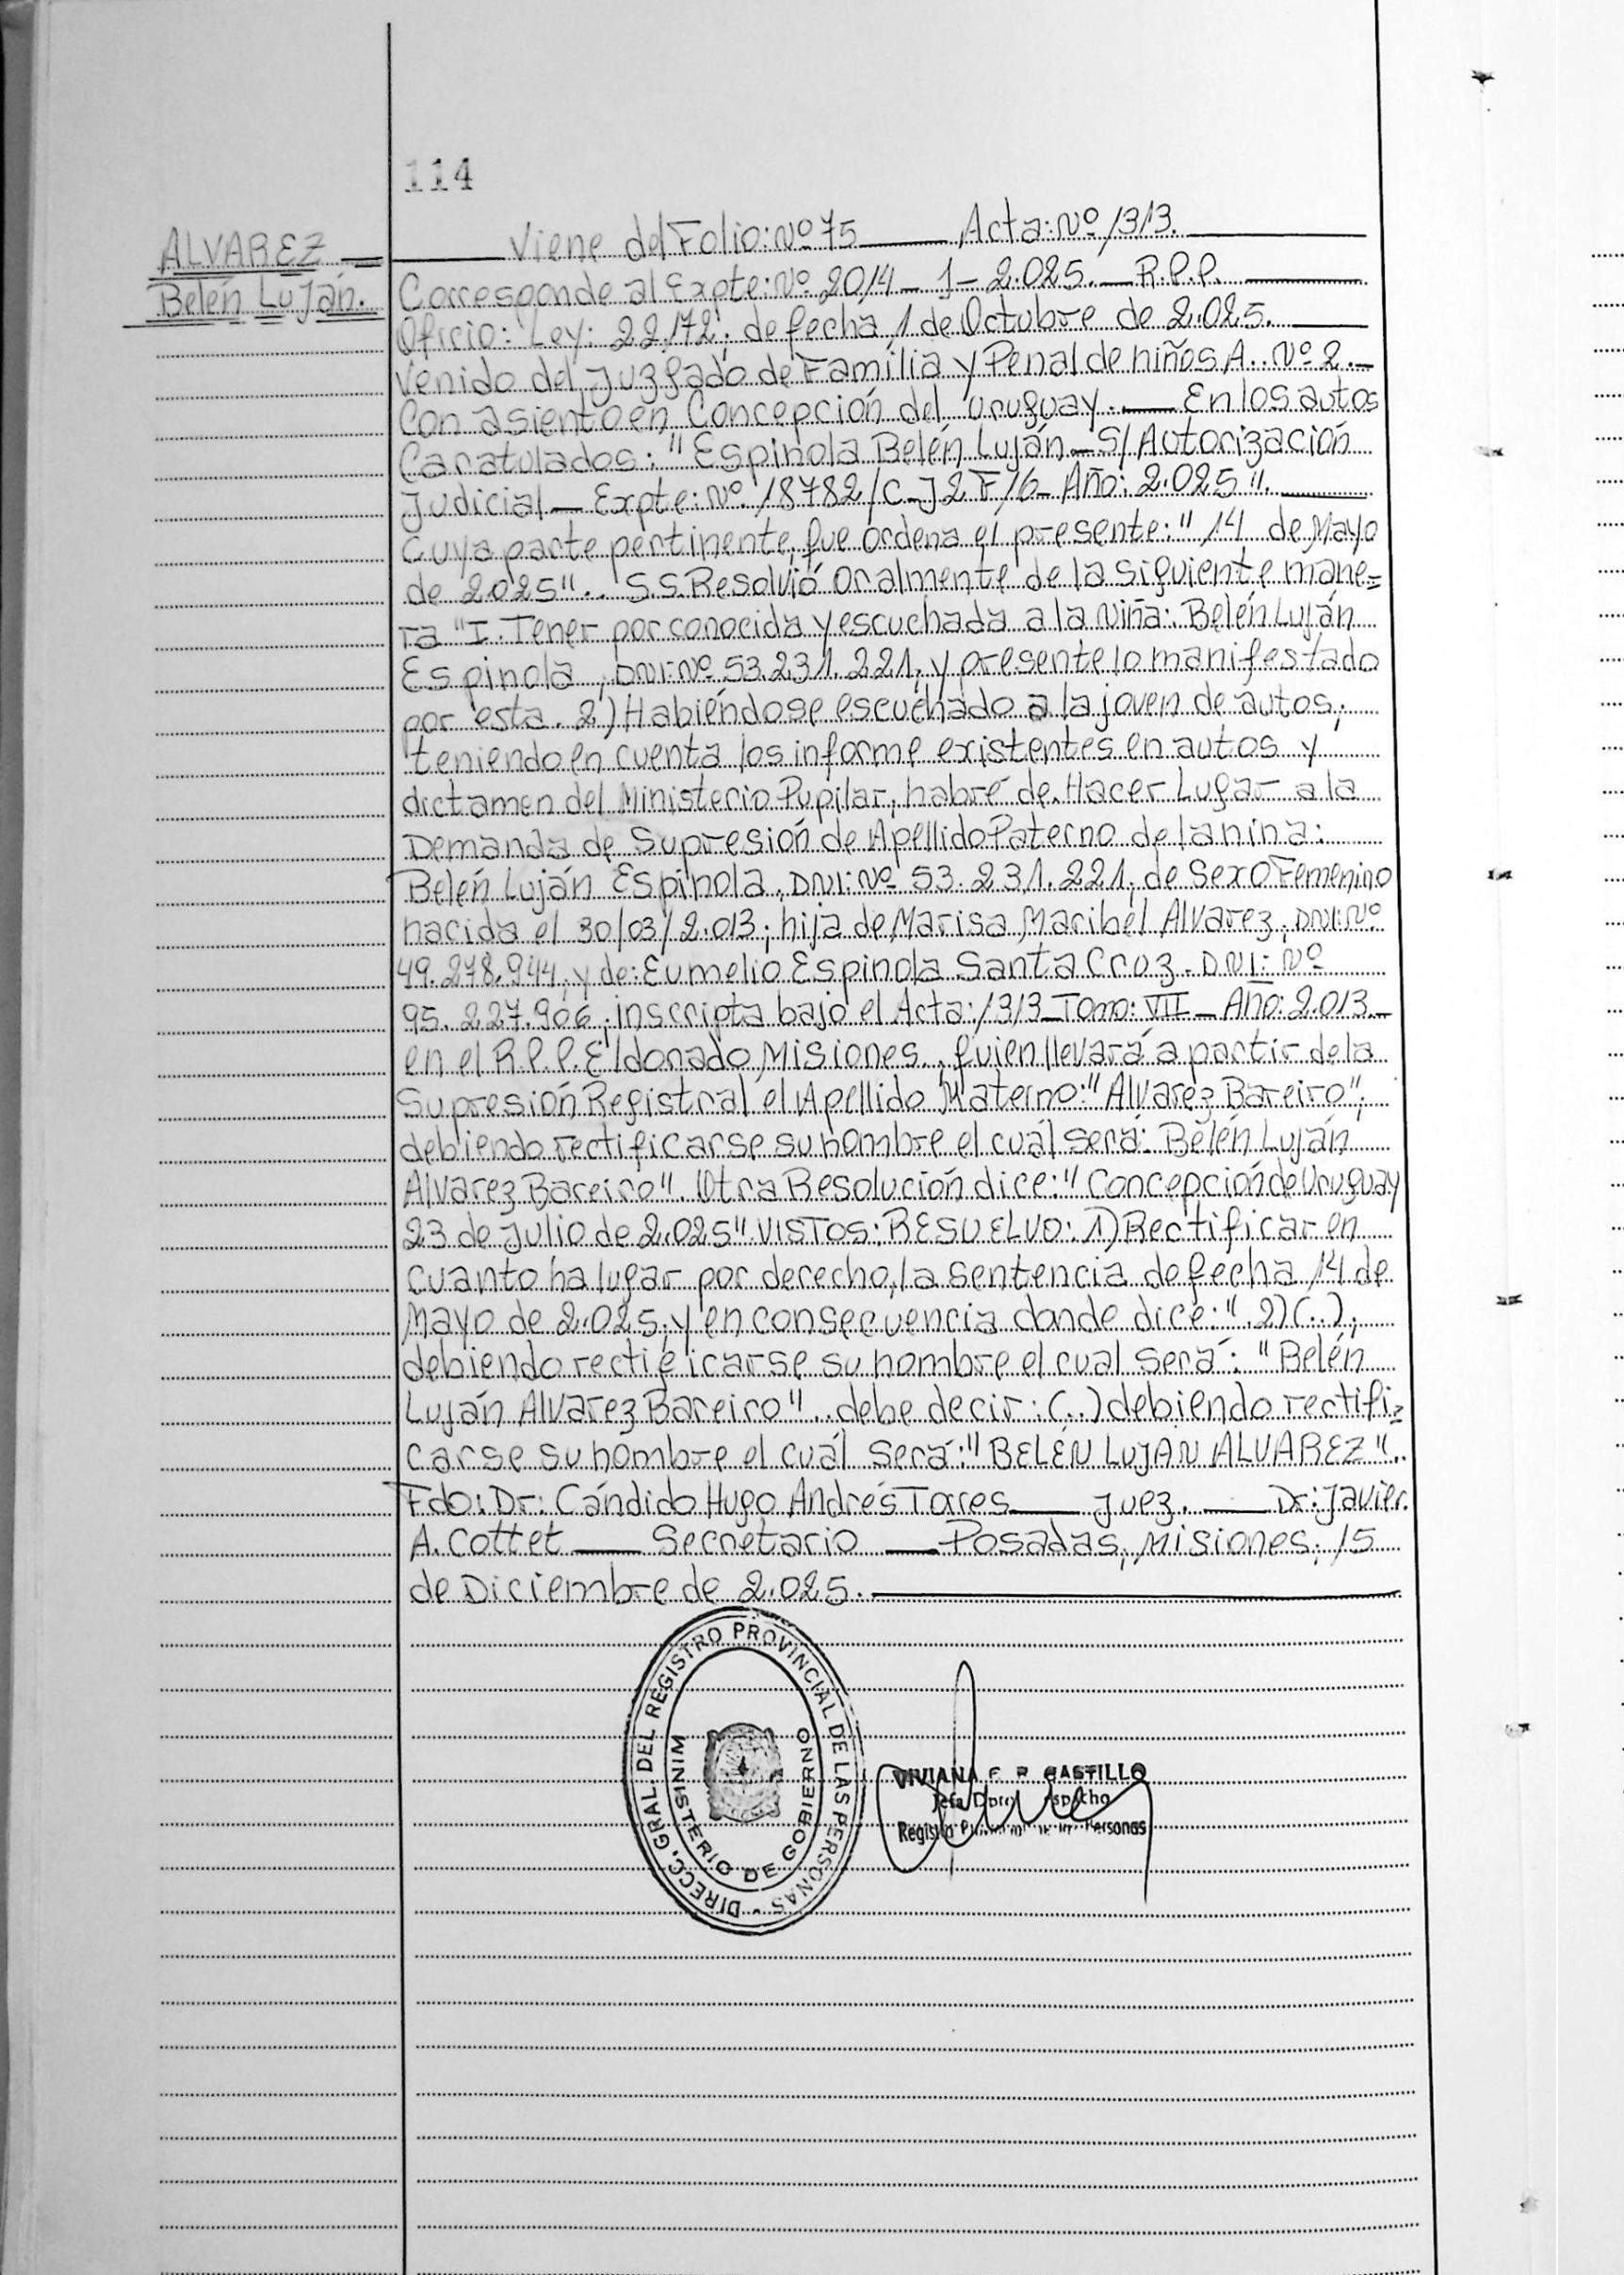 114
ALVAREZ
Belén Luján.
Viene del Folio: Nº 75 Acta: Nº 1313.
Corresponde al Expte: Nº 2014 - J - 2.025. R.P.P.
Oficio: Ley: 22172, de fecha 1 de Octubre de 2.025.
Venido del Juzgado de Familia y Penal de niños A.. Nº 2.
Con asiento en Concepción del Uruguay. En los autos
Caratulados: "Espinola Belén Luján - S/ Autorización
Judicial - Expte: Nº 18782/C-J2F/6- Año: 2.025".
Cuya parte pertinente, que ordena el presente: "14 de Mayo
de 2.025".. S.S. Resolvió oralmente de la siguiente mane=
ra "I. Tener por conocida y escuchada a la niña: Belén Luján
Espinola, DNI: Nº 53.231.221, y presente lo manifestado
por esta. 2) Habiéndose escuchado a la joven de autos,
teniendo en cuenta los informe existentes en autos y
dictamen del Ministerio Pupilar, habré de Hacer Lugar a la
Demanda de Supresión de Apellido Paterno de la nina:
Belén Luján Espinola, DNI: Nº 53.231.221, de Sexo Femenino
nacida el 30/03/2.013; hija de Marisa Maribel Alvarez, DNI: Nº
49.278.944, y de: Eumelio Espinola Santa Cruz. DNI: Nº
95.227.906, inscripta bajo el Acta: 1313 - Tomo: VII - Año: 2.013
en el R.P.P. Eldorado, Misiones, quien llevará a partir de la
Supresión Registral el Apellido Materno: "Alvarez Bareiro",
debiendo rectificarse su nombre el cuál será: Belén Luján
Alvarez Bareiro". Otra Resolución dice: "Concepción de Uruguay
23 de Julio de 2.025" VISTOS: RESUELVO: 1) Rectificar en
cuanto ha lugar por derecho, la sentencia de fecha 14 de
Mayo de 2.025, y en consecuencia donde dice: ". 2) (..),
debiendo rectificarse su nombre el cual será: "Belén
Luján Alvarez Bareiro".. debe decir: (..) debiendo rectifi=
carse su nombre el cuál será: "BELÉN LUJAN ALVAREZ"..
Fdo: Dr: Cándido Hugo Andrés Torres Juez. Dr: Javier.
A. Cottet Secretario Posadas, Misiones, 15
de Diciembre de 2.025.
DIRECC. GRAL DEL REGISTRO PROVINCIAL DE LAS PERSONAS
MINISTERIO DE GOBIERNO
VIVIANA CASTILLO
Jefa
Personas